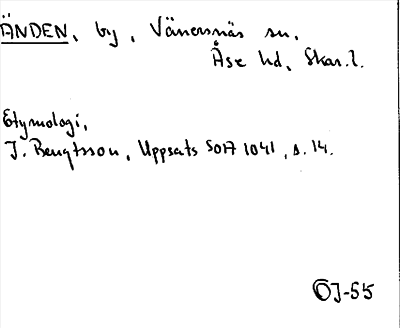 ÄNDEN, by, Vänersnäs sn,
Åse hd, Skar.l.
Etymologi,
J. Bengtsson, Uppsats SOFI 1041, s. 14.
ÖJ-55